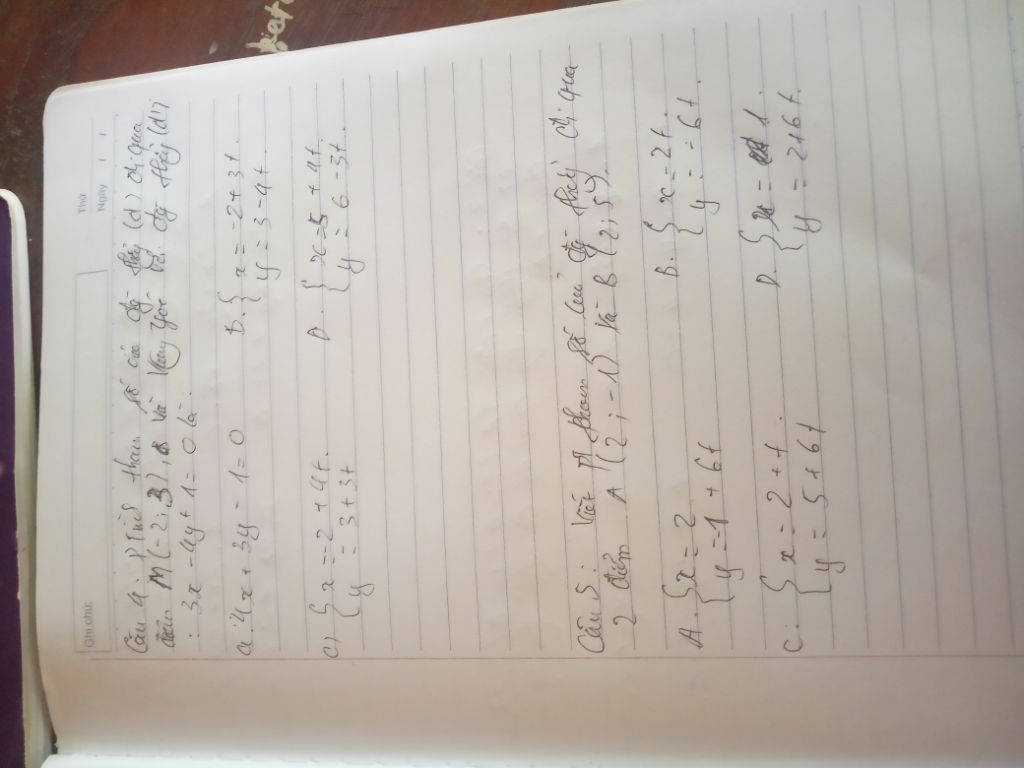 Thứ
Ngày
Ghi chú:
Câu 4: Ptts tham số của đg thẳg (d) đi qua
điểm M(-2;3), và vuông góc vs. đg thẳg (d')
: 3x - 4y + 1 = 0 là.
a. 4x + 3y - 1 = 0
B. { x = -2 + 3t.
y = 3 - 4t
C) { x = -2 + 4t.
y = 3 + 3t
D. { x = 5 + 4t
y = 6 - 3t.
Câu 5: Viết Pt tham số của đg thẳg đi qua
2 điểm A(2; -1) và B(2; 5).
A. { x = 2
y = -1 + 6t
B. { x = 2t.
y = - 6t.
C. { x = 2 + t.
y = 5 + 6t
D. { x = 1.
y = 2 + 6t.